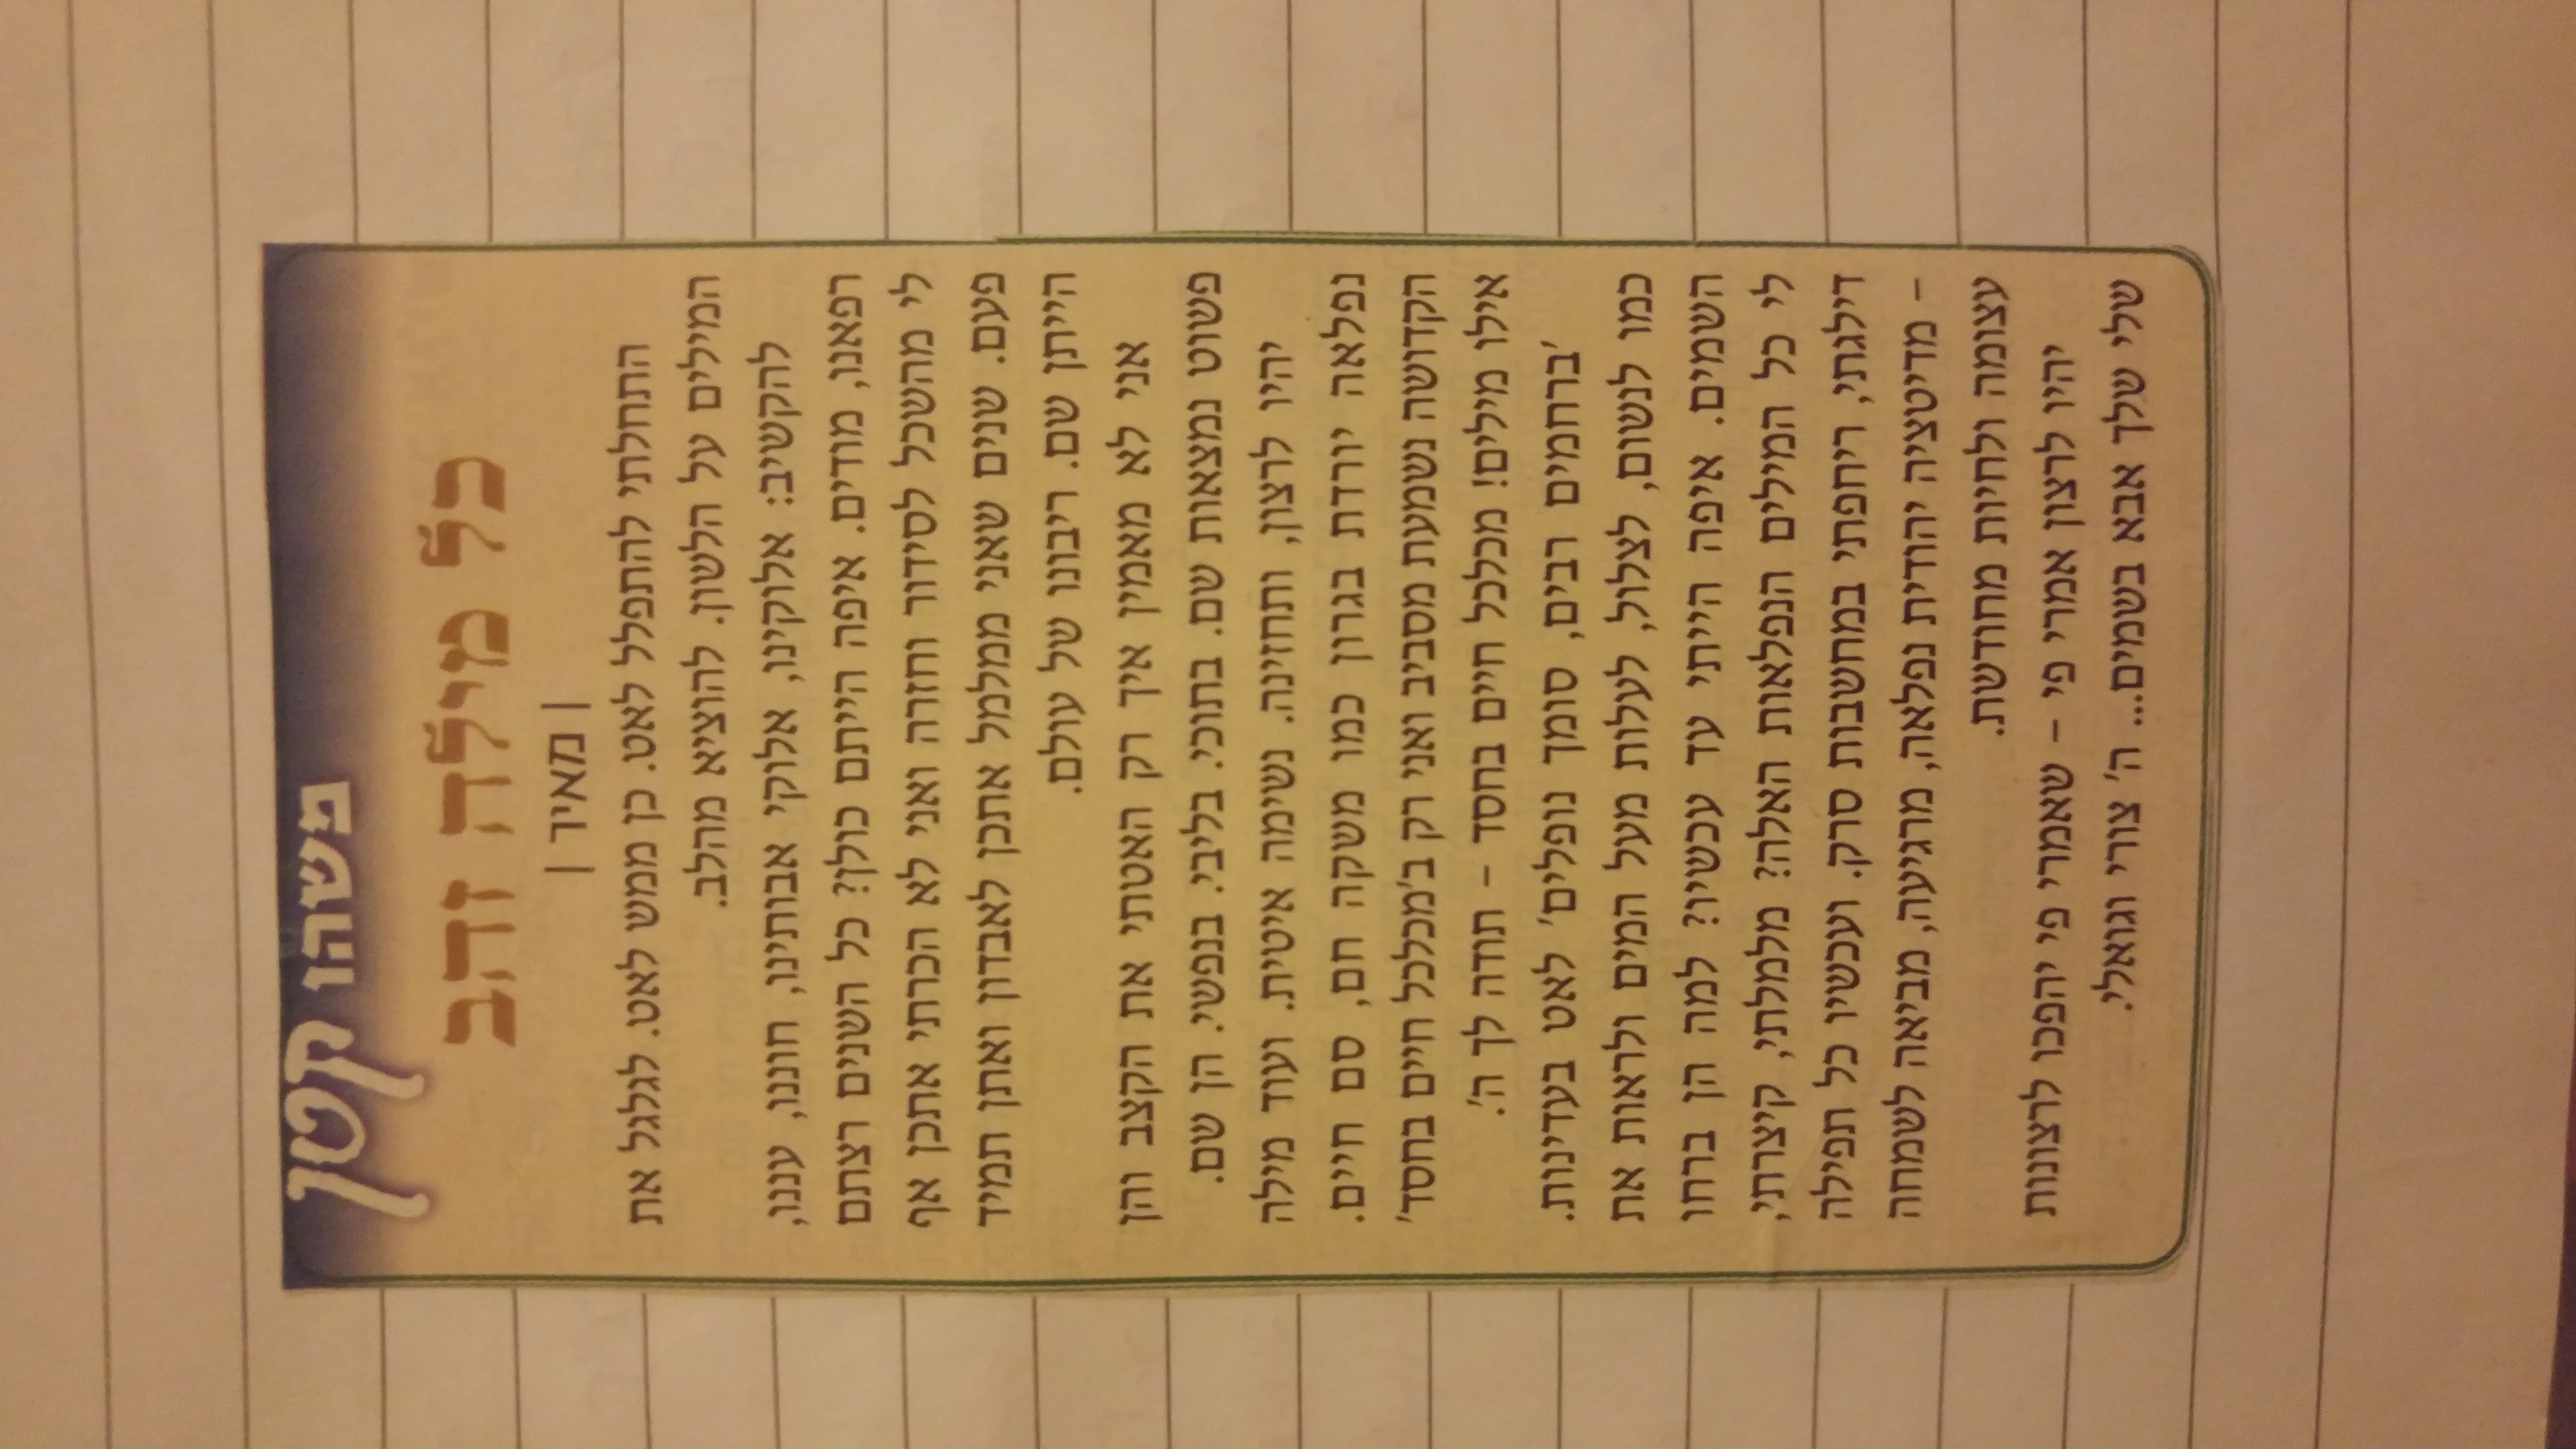 משהו קטן
כל מילה זהב
| מאיר |
התחלתי להתפלל לאט. כן ממש לאט. לגלגל את
המילים על הלשון. להוציא מהלב.
להקשיב: אלוקינו, אלוקי אבותינו, חוננו, עננו,
רפאנו, מודים. איפה הייתם כולן? כל השנים רצתם
לי מהשכל לסידור וחזרה ואני לא הכרתי אתכן אף
פעם. שנים שאני ממלמל אתכן לאבדון ואתן תמיד
הייתן שם. ריבונו של עולם.
אני לא מאמין איך רק האטתי את הקצב והן
פשוט נמצאות שם. בתוכי. בליבי. בנפשי. הן שם.
יהיו לרצון, ותחזינה. נשימה איטית. ועוד מילה
נפלאה יורדת בגרון כמו משקה חם, סם חיים.
הקדושה נשמעת מסביב ואני רק ב'מכלכל חיים בחסד'
אילו מילים! מכלכל חיים בחסד – תודה לך ה'.
'ברחמים רבים, סומך נופלים' לאט בעדינות.
כמו לנשום, לצלול, לעלות מעל המים ולראות את
השמים. איפה הייתי עד עכשיו? למה הן ברחו
לי כל המילים הנפלאות האלה? מלמלתי, קיצרתי,
דילגתי, ריחפתי במחשבות סרק. ועכשיו כל תפילה
– מדיטציה יהודית נפלאה, מרגיעה, מביאה לשמחה
עצומה ולחיות מחודשת.
יהיו לרצון אמרי פי – שאמרי פי יהפכו לרצונות
שלי שלך אבא בשמים... ה' צורי וגואלי.